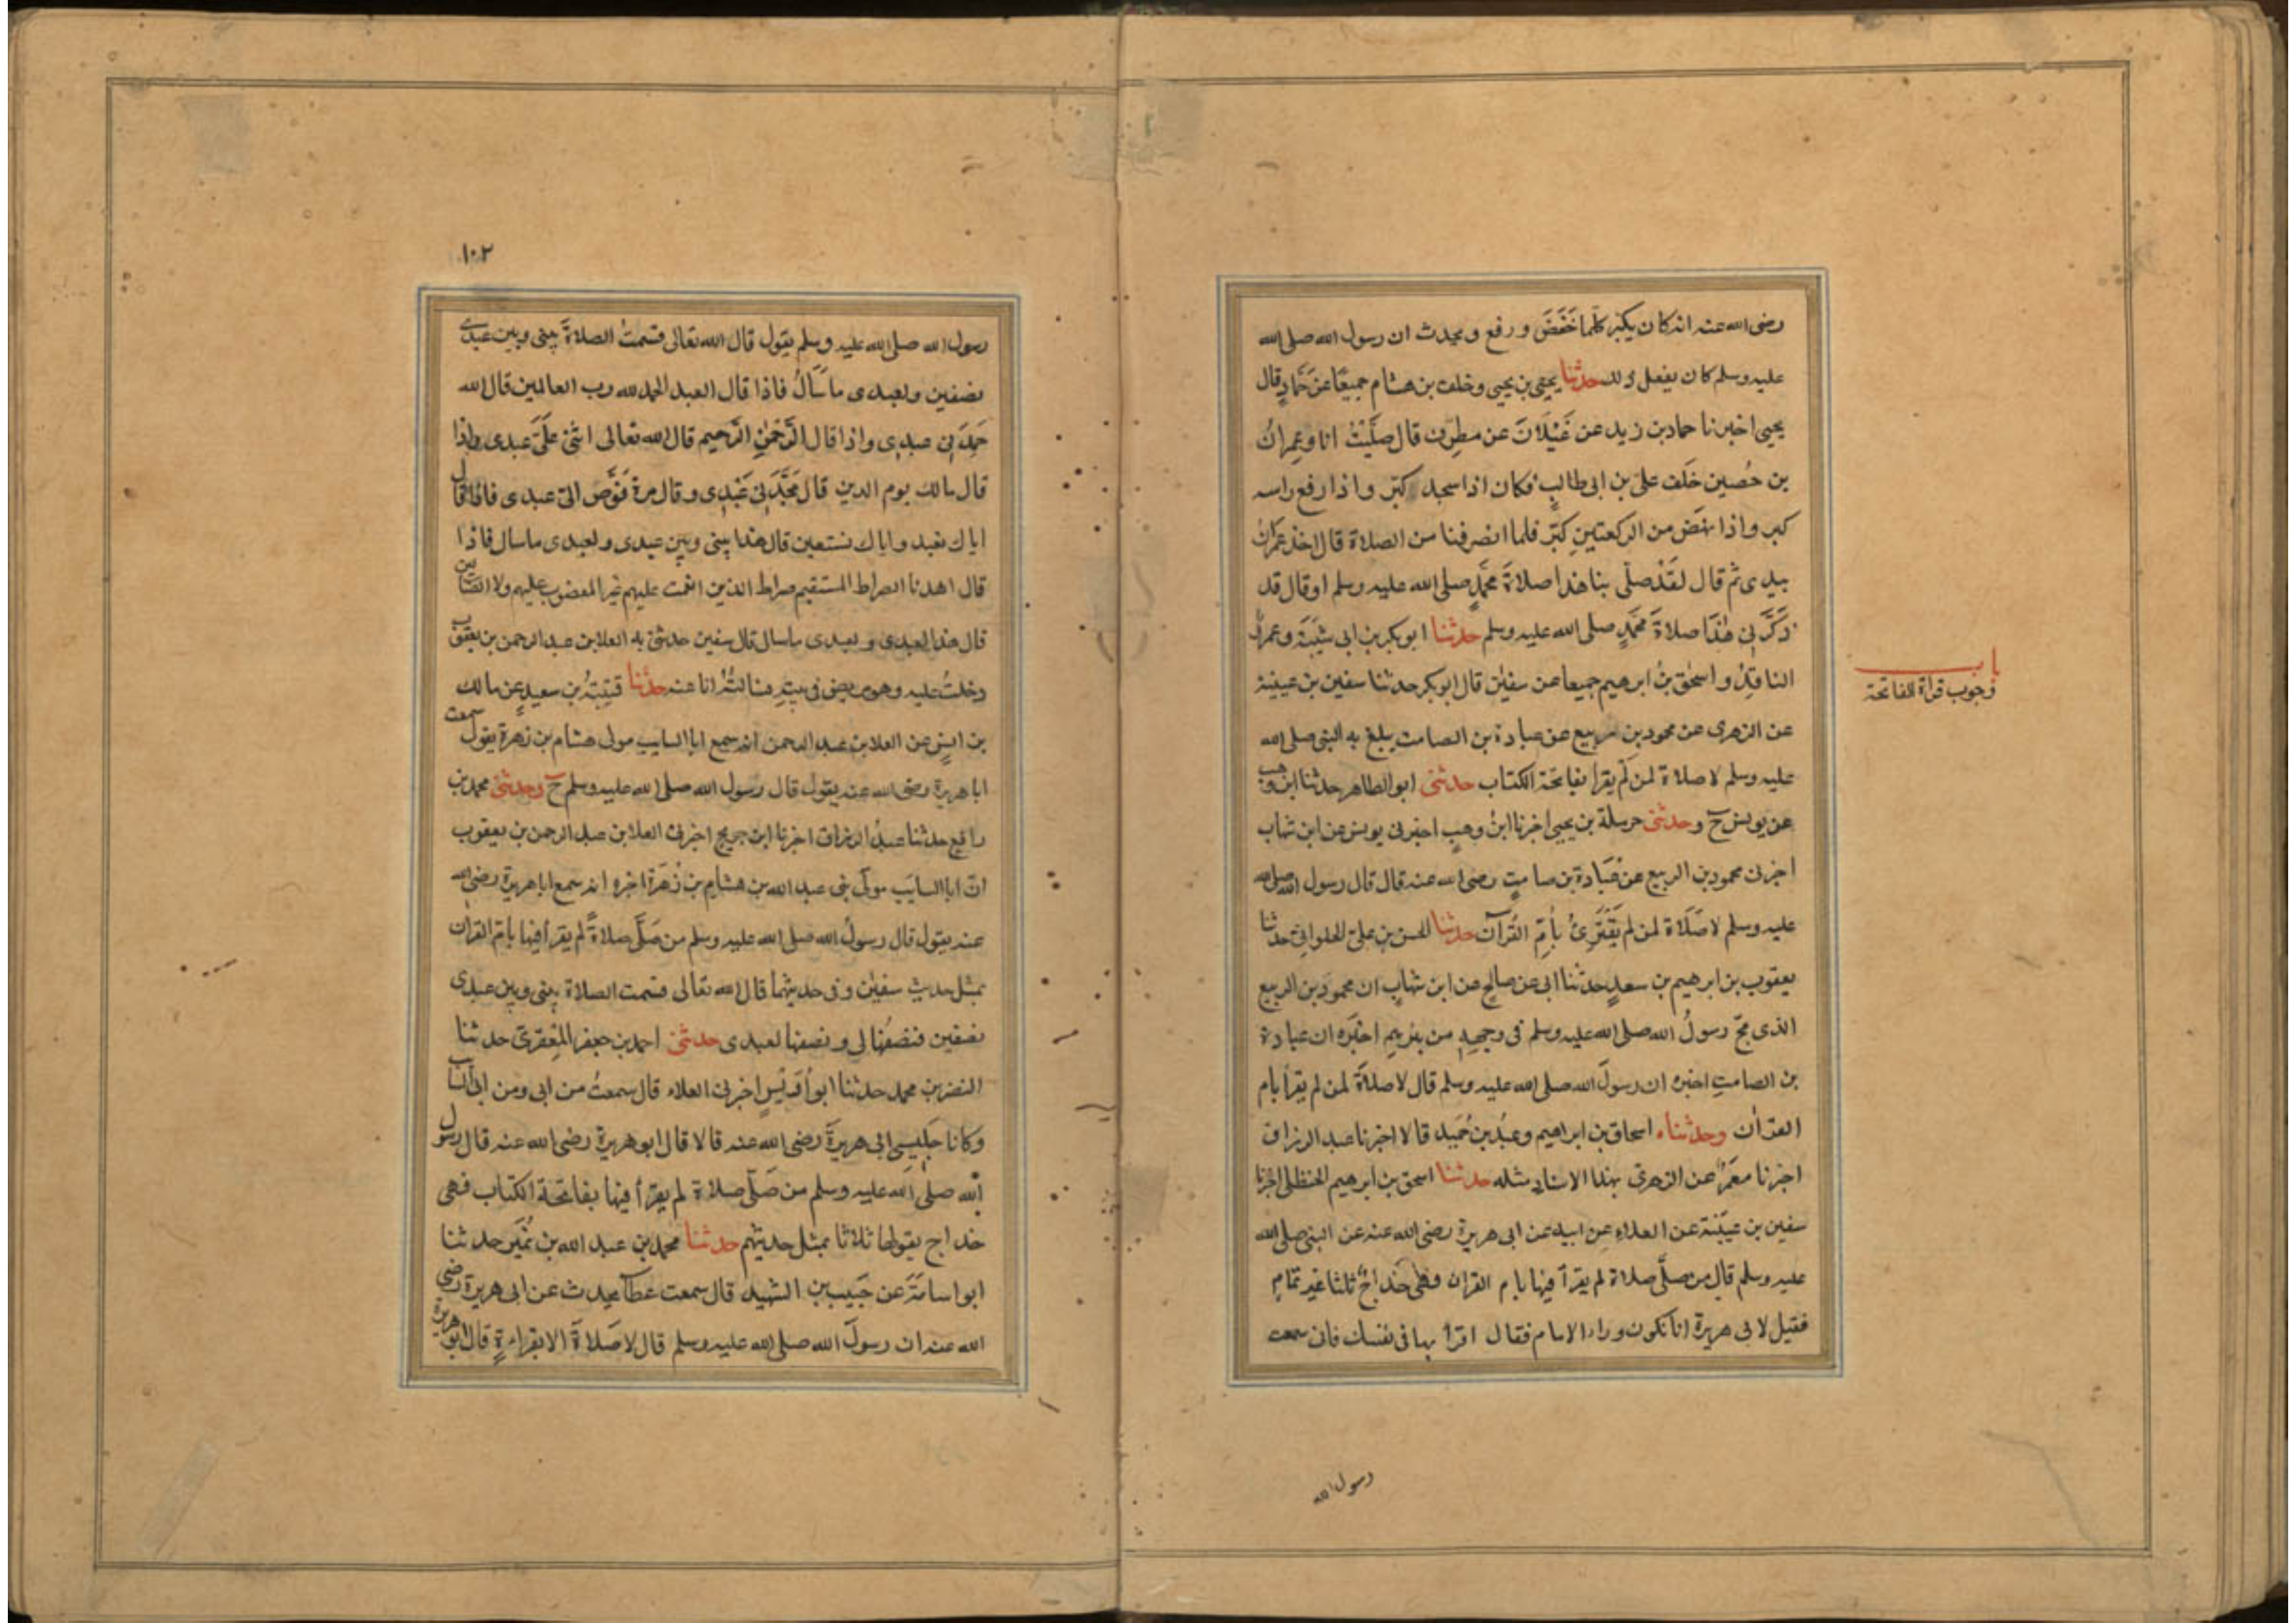 رضى الله عنه انه كان يكبر كلما خَفَضَ و رفع و يحدث ان رسول الله صلى الله
عليه وسلم كان يفعل ذلك حدثنا يحيى بن يحيى وخلف بن هشام جميعًا عن حَمّادٍ قال
يحيى اخبرنا حماد بن زيد عن غَيْلَانَ عن مطرف قال صلّيْتُ انا وعِمرانُ
بن حُصين خَلف علىّ بن ابى طالبٍ فكان اذا سجد كبّر واذا رفع راسه
كبر واذا نهَضَ من الركعتينِ كبّر فلما انصرفنا من الصلاة قال اخذ عمرانُ
بيدى ثم قال لقَدْ صلّى بنا هذا صلاةَ محمّدٍ صلى الله عليه وسلم او قال قد
ذكّرَنى هذا صلاةَ محمّدٍ صلى الله عليه وسلم حدثنا ابو بكر بن ابى شيْبَةَ وعمروٌ
الناقدُ واسحٰقُ بنُ ابرهيم جميعا عن سفيٰن قال ابو بكر حدثنا سفين بن عيينة
باب
وجوب قراة الفاتحة
عن الزهرى عن محمود بن ربيع عن عبادة بن الصامت يبلغ به النبى صلى الله
عليه وسلم لا صلاة لمن لَم يقرا بفاتحة الكتاب حدثنى ابو الطاهر حدثنا ابن وهب
عن يونس ح وحدثنى حرملة بن يحيى اخبرنا ابنُ وهبٍ اخبرنى يونس عن ابن شهاب
اخبرنى محمود بن الربيع عن عُبَادة بن صامتٍ رضى الله عنه قال قال رسول الله صلى الله
عليه وسلم لا صَلَاة لمن لم يَقْتَرِئُ بأمّ القُرآن حدثنا الحسن بن على الحلوانى حدثنا
يعقوب بن ابرهيم بن سعدٍ حدثنا ابى عن صالحٍ عن ابن شهابٍ ان محمودَ بن الربيع
الذى مجّ رسولُ الله صلى الله عليه وسلم فى وجههِ من بئرهم اخبَره ان عبادة
بن الصامتِ اخبره ان رسولَ الله صلى الله عليه وسلم قال لا صلاةَ لمن لم يقرأ بام
القرٰان وحدثناه اسحاق بن ابراهيم وعبْدُ بن حُمَيد قالا اخبرنا عبد الرزاق
اخبرنا معمَرٌ عن الزهرىّ بهذا الاسنادِ مثله حدثنا اسحق بن ابرهيم الحنظلى اخبرنا
سفين بن عيَيْنة عن العلاءِ عن ابيه عن ابى هريرة رضى الله عنه عن النبى صلى الله
عليه وسلم قال من صلّى صلاة لم يقرأ فيها بام القران فهى خداجٌ ثلثا غير تمَامٍ
فقيل لابى هريرة انا نكون وراء الامام فقال اقرأ بها فى نفسك فانى سمعت
رسول الله
١٠٢
رسول الله صلى الله عليه وسلم يقول قال الله تعالى قسمتُ الصلاةَ بينى وبين عبدى
نصفين ولعبدى ما سَأَلَ فاذا قال العبد الحمد لله رب العالمين قال الله
حَمِدَنى عبدى واذا قال الرَّحمٰنِ الرَّحيم قال الله تعالى اثنىٰ علَىَّ عبدى واذا
قال مالك يوم الدين قال مَجَّدَنى عَبْدِى وقال مرة فَوَّض الىّ عبدى فاذا قال
اياك نعبد واياك نستعين قال هذا بينى وبين عبدى ولعبدى ما سال فاذا
قال اهدنا الصراط المستقيم صراط الذين انعمت عليهم غير المغضوب عليهم ولا الضالين
قال هذا لعبدى ولعبدى ما سال قال سفين حدثنى به العلا بن عبد الرحمن بن يعقوب
دخلتُ عليه وهو مريض فى بيتهِ فسالتُهُ انا عنه حدثنا قتيبَةُ بن سعيدٍ عن مالك
بن انسٍ عن العلا بن عبد الرحمن انه سمع ابا السايب مولى هشام بن زهرة يقول سمعت
ابا هريرة رضى الله عنه يقول قال رسول الله صلى الله عليه وسلم ح وحدثنى محمد بن
رافع حدثنا عبدُ الرزاق اخبرنا ابن جريج اخبرنى العلا بن عبد الرحمن بن يعقوب
انّ ابا السايب مولى بنى عبد الله بن هشام بن زُهرَة اخبره انه سمع ابا هريرة رضى الله
عنه يقول قال رسولُ الله صلى الله عليه وسلم من صَلَّى صلاةً لم يقرأ فيها بامّ القران
بمثل حديث سفيٰن وفى حديثهما قال الله تعالى قسمت الصلاة بينى وبين عبدى
نصفين فنصفُها لى ونصفها لعبدى حدثنى احمد بن جعفر المَعْقرىّ حدثنا
النضر بن محمد حدثنا ابو أوَيْسٍ اخبرنى العلاء قال سمعتُ من ابى ومن ابى السايب
وكانا جَليسى ابى هريرةَ رضى الله عنه قالا قال ابو هريرة رضى الله عنه قال رسول
الله صلى الله عليه وسلم من صَلّى صلاة لم يقرأ فيها بفاتحة الكتاب فهى
خداج يقولها ثلاثا بمثل حديثهم حدثنا محمد بن عبد الله بن نُمَير حدثنا
ابو اسامَةَ عن حَبيب بن الشهيد قال سمعت عطآءً يحدث عن ابى هريرة رضى
الله عنه ان رسولَ الله صلى الله عليه وسلم قال لا صَلاةَ الا بقراءةٍ قال ابو هريرة